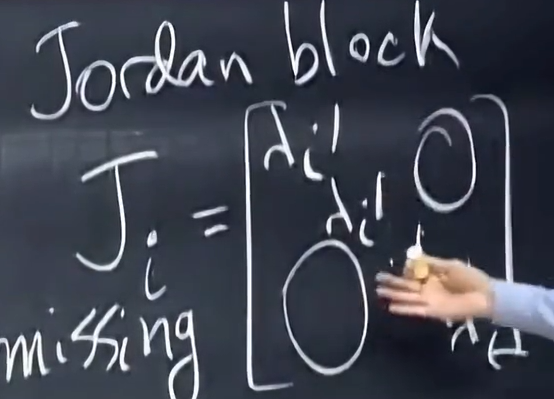 Jordan block
J_i = [ λ_i 1 0
λ_i 1
0 λ_i ]
missing